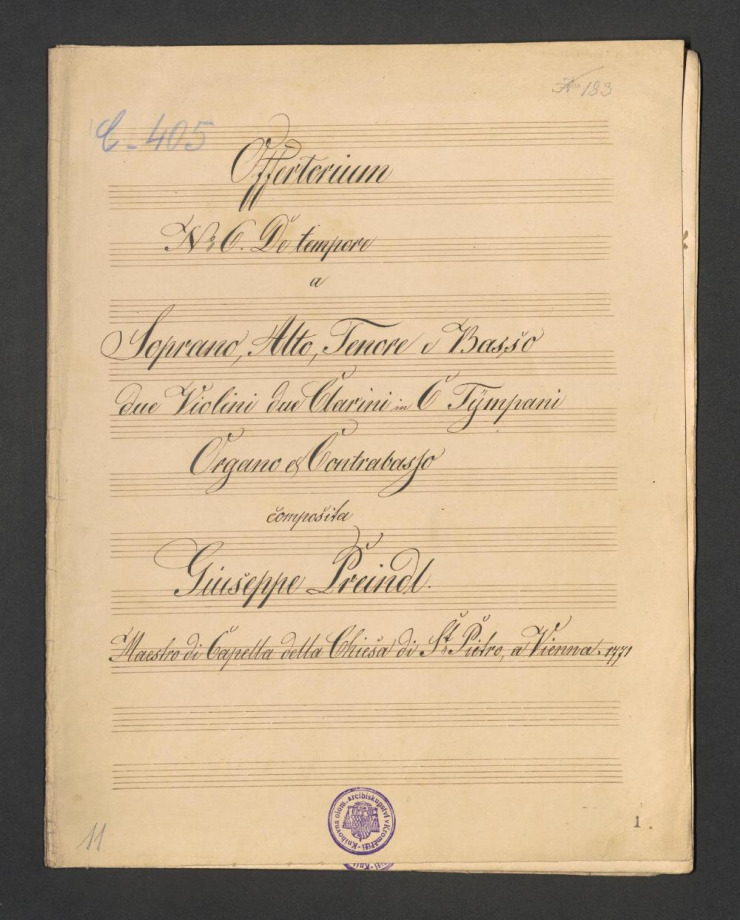 No 183
C-405
Offertorium
No 6. De tempore
a
Soprano, Alto, Tenore e Basso
due Violini due Clarini in C Tÿmpani
Organo et Contrabasso
composita
Giuseppe Preindl.
Maestro di Capella della Chiesa di St. Pietro, a Vienna. 1771
Knihovna olom. arcibiskupství v Kroměříži
1
11